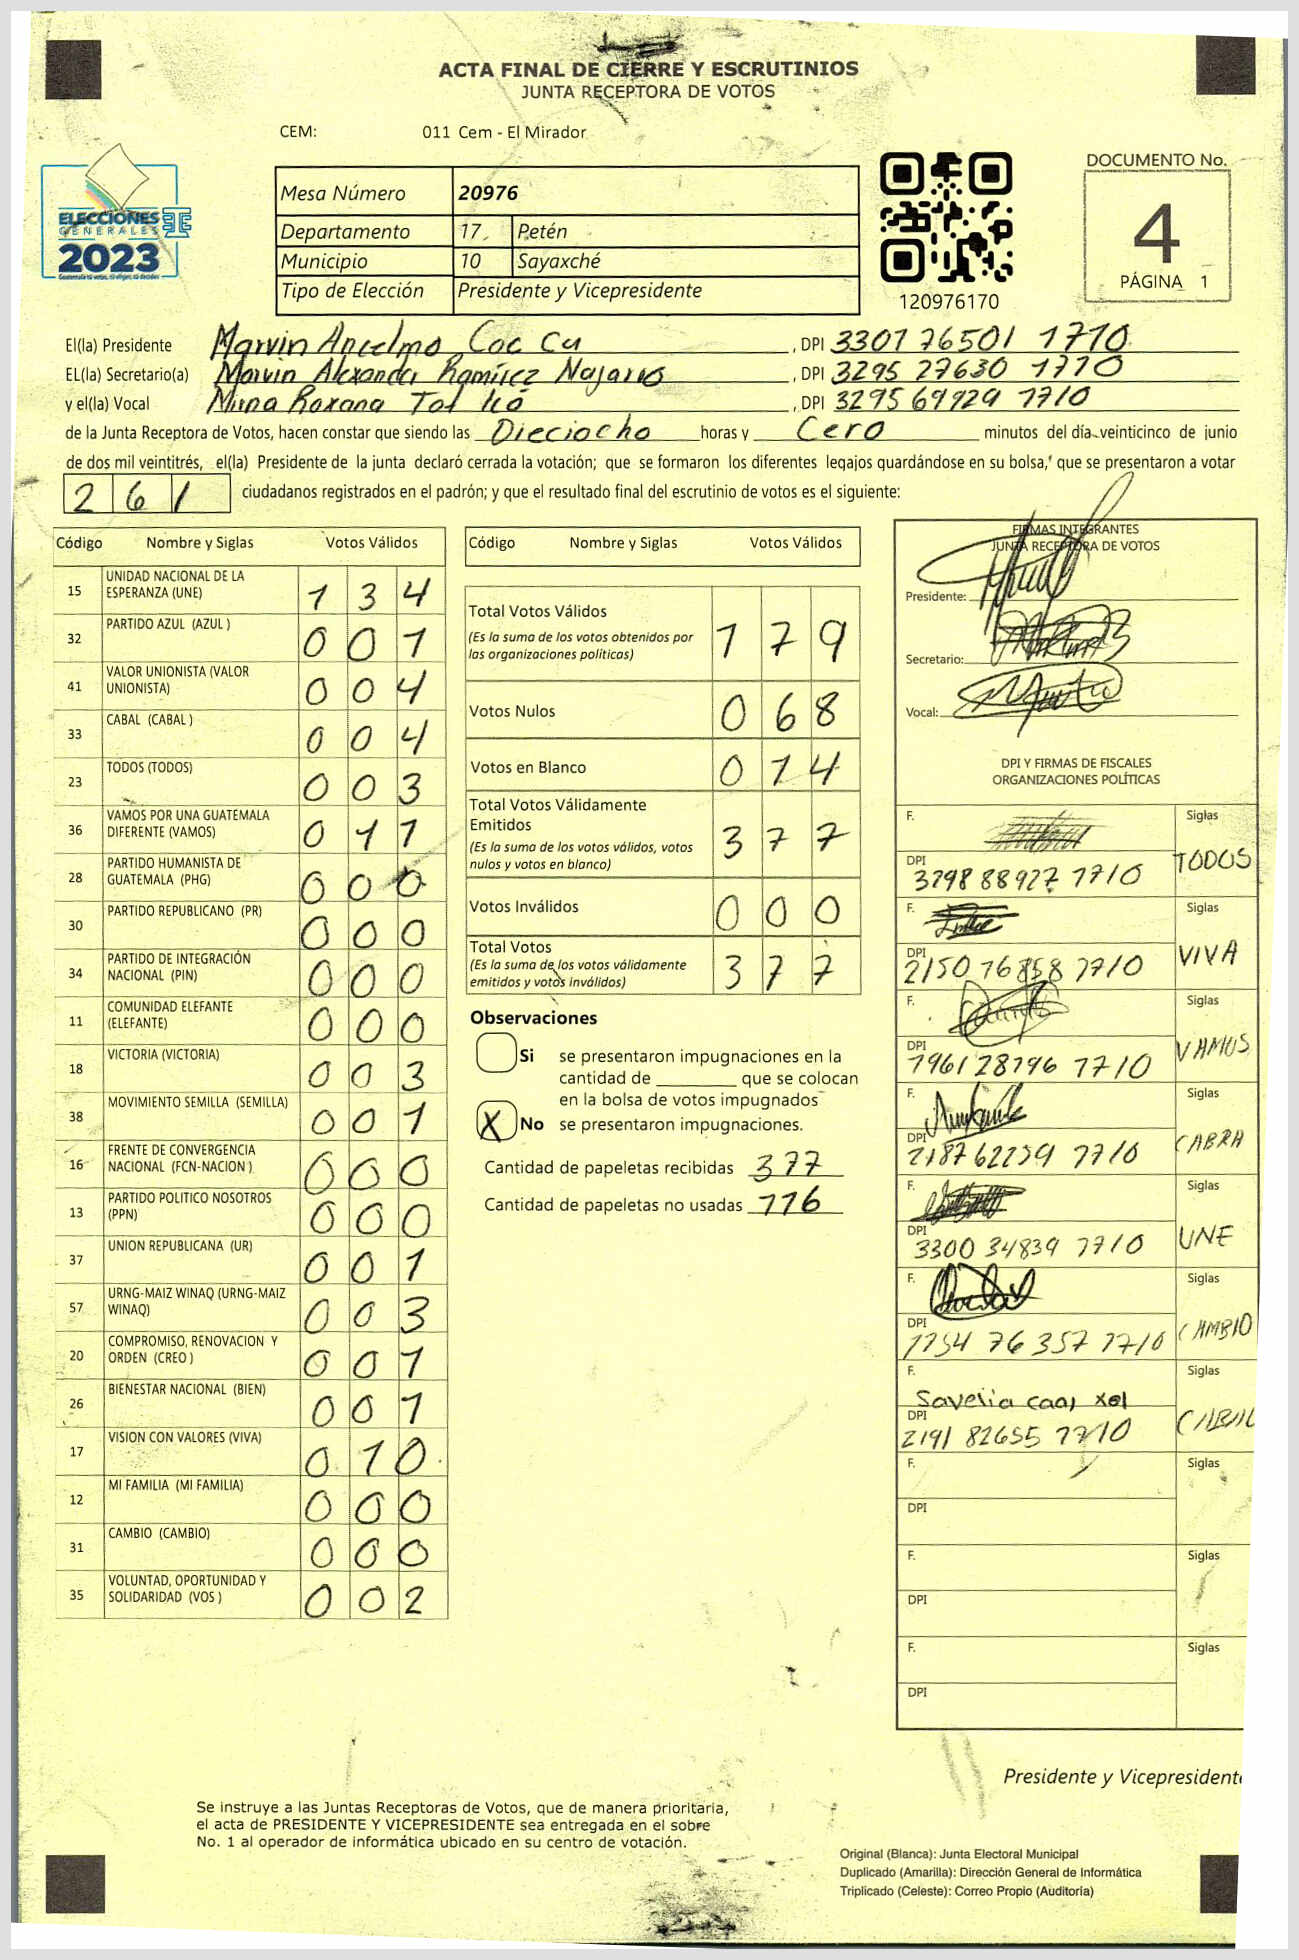 ACTA FINAL DE CIERRE Y ESCRUTINIOS
JUNTA RECEPTORA DE VOTOS
CEM: 011 Cem - El Mirador
ELECCIONES
GENERALES
2023
Mesa Número 20976
Departamento 17 Petén
Municipio 10 Sayaxché
Tipo de Elección Presidente y Vicepresidente
120976170
DOCUMENTO No.
4
PÁGINA 1
El(la) Presidente Marvin Anselmo Coc Cu , DPI 3301 76501 1710
EL(la) Secretario(a) Marvin Alexander Ramírez Najarro , DPI 3295 27630 1710
y el(la) Vocal Mirna Roxana Tot Icó , DPI 3295 69929 1710
de la Junta Receptora de Votos, hacen constar que siendo las Dieciocho horas y Cero minutos del día veinticinco de junio
de dos mil veintitrés, el(la) Presidente de la junta declaró cerrada la votación; que se formaron los diferentes legajos guardándose en su bolsa, que se presentaron a votar
261 ciudadanos registrados en el padrón; y que el resultado final del escrutinio de votos es el siguiente:
Código Nombre y Siglas Votos Válidos
15 UNIDAD NACIONAL DE LA ESPERANZA (UNE) 134
32 PARTIDO AZUL (AZUL ) 001
41 VALOR UNIONISTA (VALOR UNIONISTA) 004
33 CABAL (CABAL ) 004
23 TODOS (TODOS) 003
36 VAMOS POR UNA GUATEMALA DIFERENTE (VAMOS) 011
28 PARTIDO HUMANISTA DE GUATEMALA (PHG) 000
30 PARTIDO REPUBLICANO (PR) 000
34 PARTIDO DE INTEGRACIÓN NACIONAL (PIN) 000
11 COMUNIDAD ELEFANTE (ELEFANTE) 000
18 VICTORIA (VICTORIA) 003
38 MOVIMIENTO SEMILLA (SEMILLA) 001
16 FRENTE DE CONVERGENCIA NACIONAL (FCN-NACION ) 000
13 PARTIDO POLITICO NOSOTROS (PPN) 000
37 UNION REPUBLICANA (UR) 001
57 URNG-MAIZ WINAQ (URNG-MAIZ WINAQ) 003
20 COMPROMISO, RENOVACION Y ORDEN (CREO ) 001
26 BIENESTAR NACIONAL (BIEN) 001
17 VISION CON VALORES (VIVA) 010
12 MI FAMILIA (MI FAMILIA) 000
31 CAMBIO (CAMBIO) 000
35 VOLUNTAD, OPORTUNIDAD Y SOLIDARIDAD (VOS ) 002
Código Nombre y Siglas Votos Válidos
Total Votos Válidos 179
(Es la suma de los votos obtenidos por
las organizaciones políticas)
Votos Nulos 068
Votos en Blanco 014
Total Votos Válidamente
Emitidos 377
(Es la suma de los votos válidos, votos
nulos y votos en blanco)
Votos Inválidos 000
Total Votos 377
(Es la suma de los votos válidamente
emitidos y votos inválidos)
Observaciones
Si se presentaron impugnaciones en la
cantidad de ________ que se colocan
en la bolsa de votos impugnados
X No se presentaron impugnaciones.
Cantidad de papeletas recibidas 377
Cantidad de papeletas no usadas 116
FIRMAS INTEGRANTES
JUNTA RECEPTORA DE VOTOS
Presidente:
Secretario:
Vocal:
DPI Y FIRMAS DE FISCALES
ORGANIZACIONES POLÍTICAS
F. Siglas
DPI 3298 88927 1710 TODOS
F. Siglas
DPI 2150 76858 1710 VIVA
F. Siglas
DPI 1961 28796 1710 VAMOS
F. Siglas
DPI 2187 62259 1710 CABRA
F. Siglas
DPI 3300 34839 1710 UNE
F. Siglas
DPI 1754 76357 1710 CAMBIO
F. Savelia caal xol Siglas
DPI 2191 82655 1710 CABAL
F. Siglas
DPI
F. Siglas
DPI
F. Siglas
DPI
Presidente y Vicepresident
Se instruye a las Juntas Receptoras de Votos, que de manera prioritaria,
el acta de PRESIDENTE Y VICEPRESIDENTE sea entregada en el sobre
No. 1 al operador de informática ubicado en su centro de votación.
Original (Blanca): Junta Electoral Municipal
Duplicado (Amarilla): Dirección General de Informática
Triplicado (Celeste): Correo Propio (Auditoría)